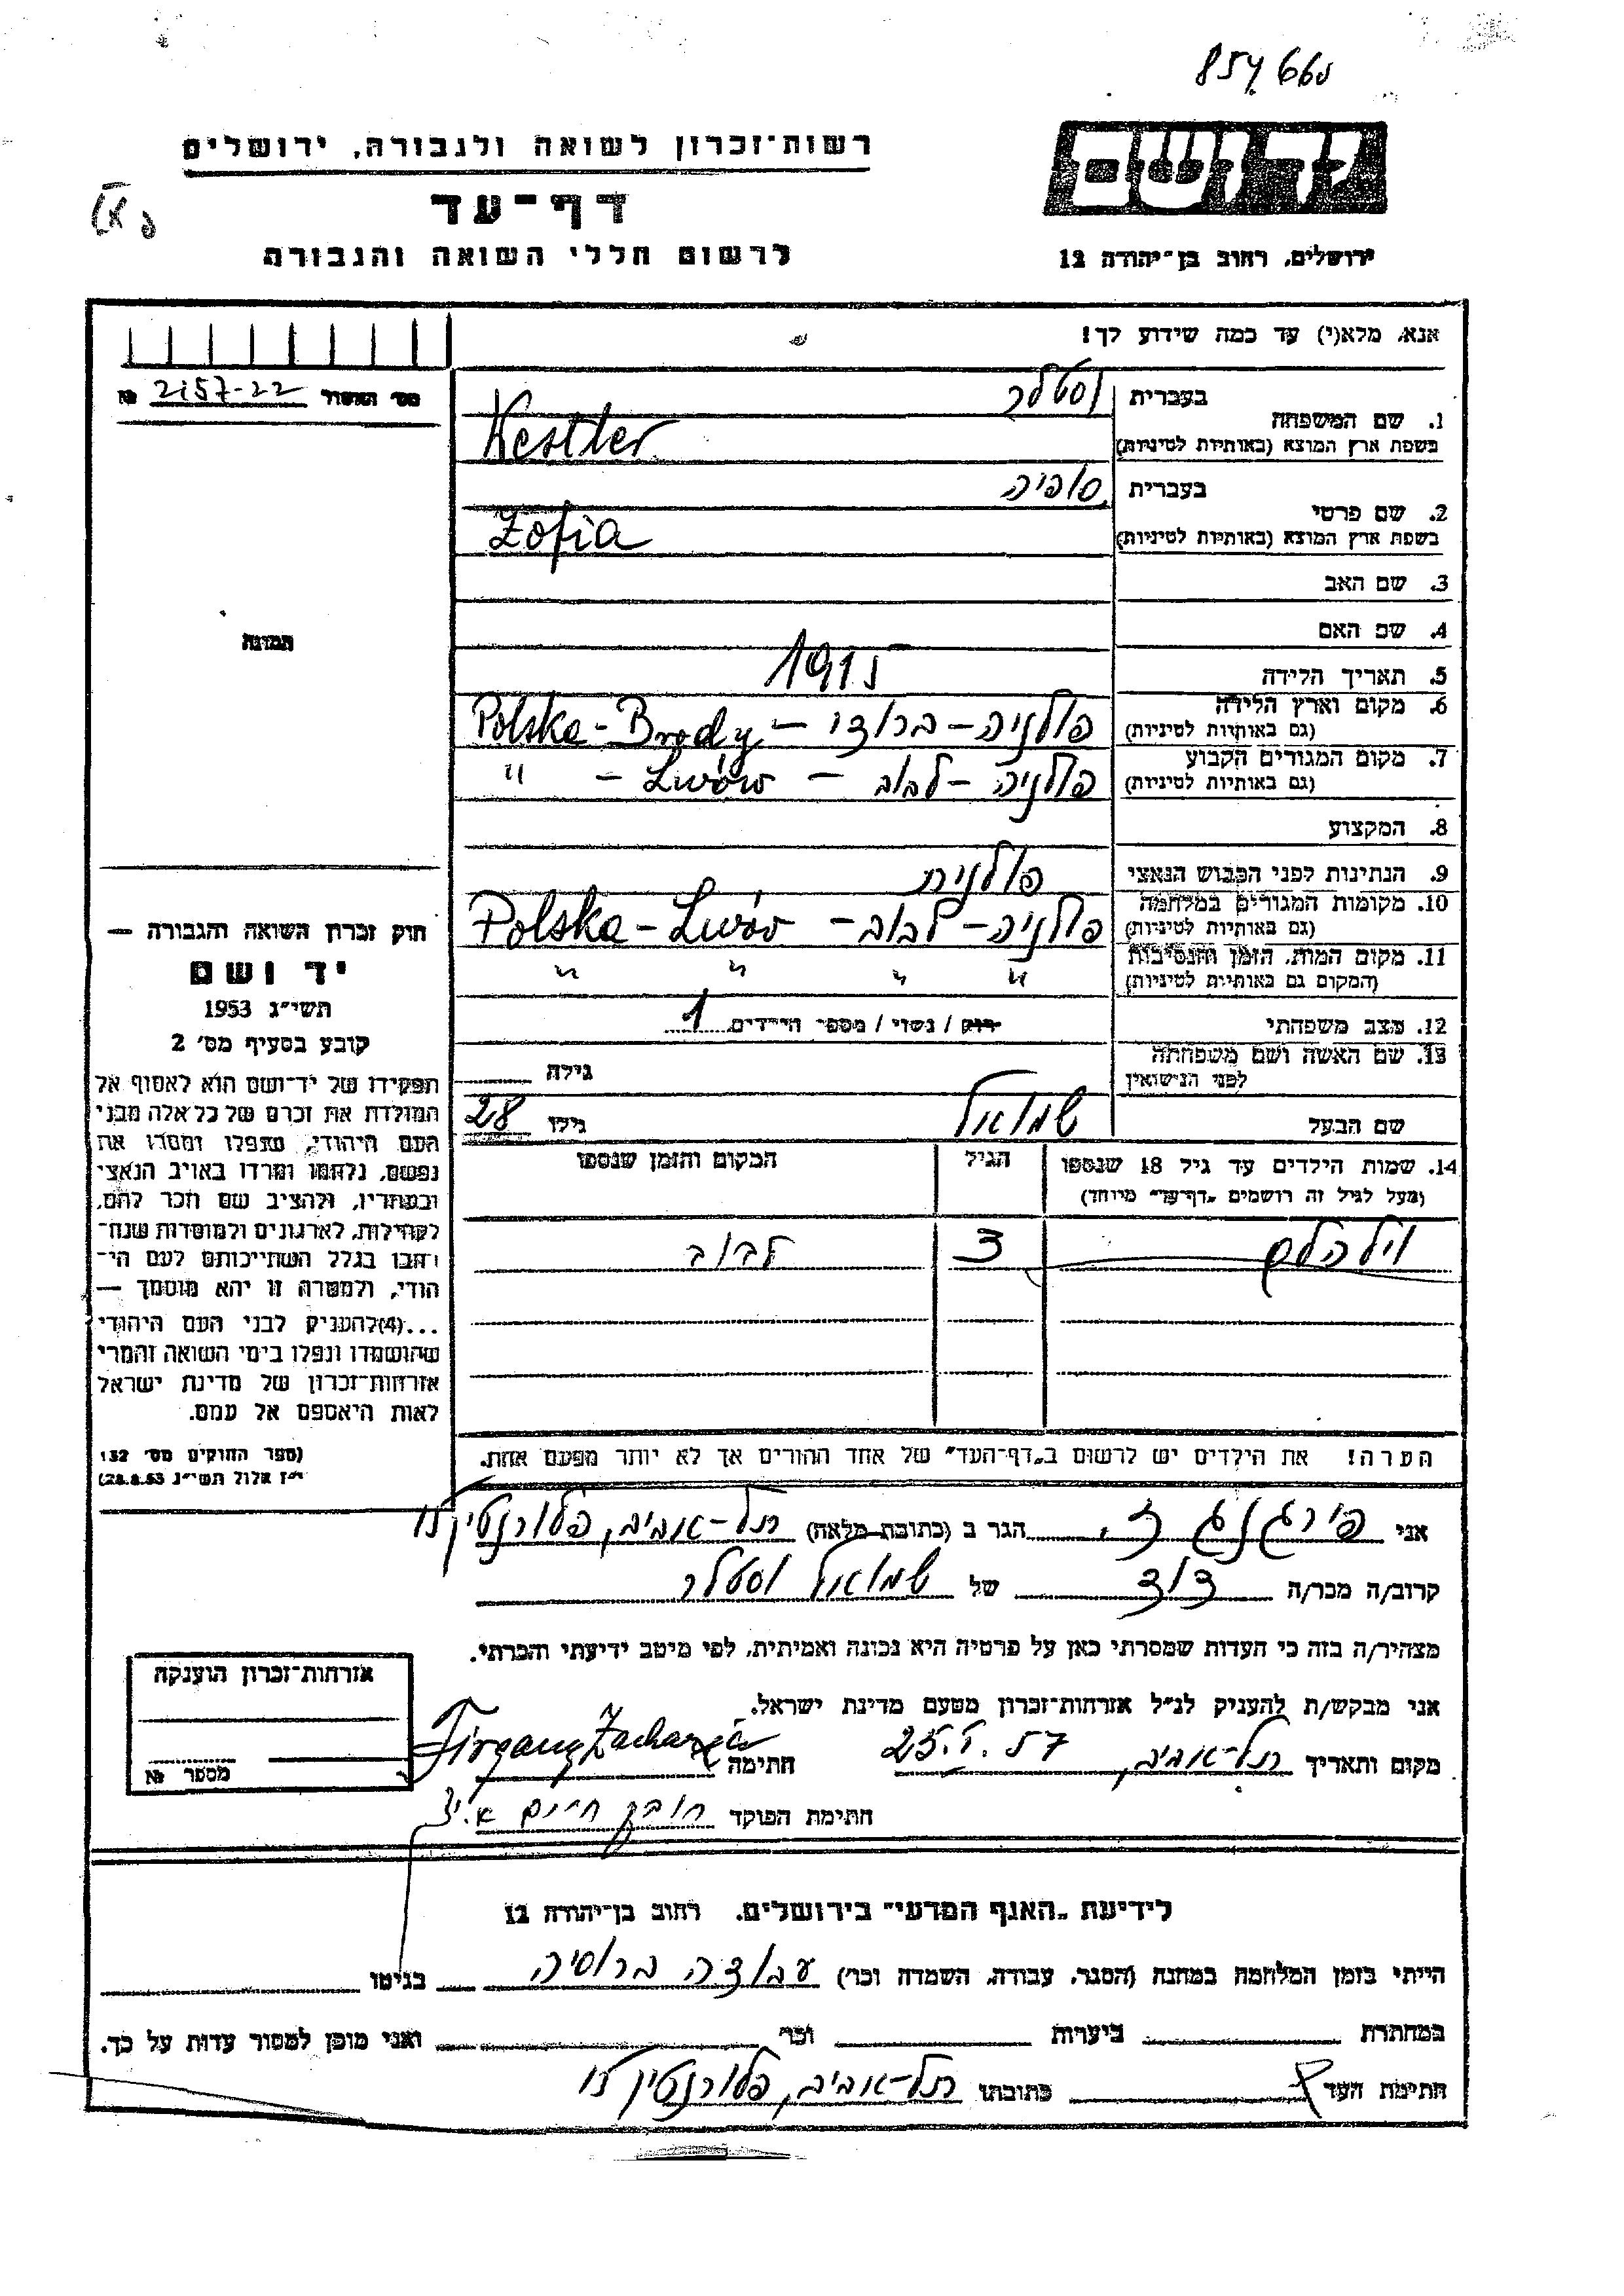 854660
רשות־זכרון לשואה ולגבורה, ירושלים
דף־עד
לרשום חללי השואה והגבורה
ירושלים, רחוב בן־יהודה 12
אנא, מלא(י) עד כמה שידוע לך!
מס׳ האשור 2157-22 №
1. שם המשפחה
בעברית וסטלר
בשפת ארץ המוצא (באותיות לטיניות) Westler
2. שם פרטי
בעברית סופיה
בשפת ארץ המוצא (באותיות לטיניות) Zofia
3. שם האב
4. שם האם
תמונה
5. תאריך הלידה 1915
6. מקום וארץ הלידה (גם באותיות לטיניות) פולניה - ברודי - Polska - Brody
7. מקום המגורים הקבוע (גם באותיות לטיניות) פולניה - לבוב - Lwów - "
8. המקצוע
9. הנתינות לפני הכבוש הנאצי פולנית
10. מקומות המגורים במלחמה (גם באותיות לטיניות) פולניה - לבוב - Polska - Lwów
11. מקום המות, הזמן והנסיבות (המקום גם באותיות לטיניות) " " " "
12. מצב משפחתי רווק / נשוי / מספר הילדים 1
13. שם האשה ושם משפחתה לפני הנישואין גילה
שם הבעל שמואל גילו 28
14. שמות הילדים עד גיל 18 שנספו הגיל המקום והזמן שנספו
(מעל לגיל זה רושמים „דף־עד״ מיוחד)
וילהלם 3 לבוב
הערה! את הילדים יש לרשום ב„דף־העד״ של אחד ההורים אך לא יותר מפעם אחת.
חוק זכרון השואה והגבורה —
יד ושם
תשי״ג 1953
קובע בסעיף מס׳ 2
תפקידו של יד־ושם הוא לאסוף אל
המולדת את זכרם של כל אלה מבני
העם היהודי, שנפלו ומסרו את
נפשם, נלחמו ומרדו באויב הנאצי
ובעוזריו, ולהציב שם וזכר להם,
לקהילות, לארגונים ולמוסדות שנח־
רבו בגלל השתייכותם לעם הי־
הודי, ולמטרה זו יהא מוסמך —
...(4) להעניק לבני העם היהודי
שהושמדו ונפלו בימי השואה והמרי
אזרחות־זכרון של מדינת ישראל
לאות היאספם אל עמם.
(ספר החוקים מס׳ 132
י״ז אלול תשי״ג 28.8.53)
אני פירגנג ז. הגר ב (כתובת מלאה) תל-אביב, פלורנטין
קרוב/ה מכר/ה דוד של שמואל וסטלר
מצהיר/ה בזה כי העדות שמסרתי כאן על פרטיה היא נכונה ואמיתית, לפי מיטב ידיעתי והכרתי.
אני מבקש/ת להעניק לנ״ל אזרחות־זכרון מטעם מדינת ישראל.
מקום ותאריך תל-אביב, 25.V.57 חתימה Firgang Zacharia
חתימת הפוקד חיים
אזרחות־זכרון הוענקה
מספר №
לידיעת „האגף המדעי״ בירושלים, רחוב בן־יהודה 12
הייתי בזמן המלחמה במחנה (הסגר, עבודה, השמדה וכו׳) עבודה ברוסיה בגיטו
במחתרת ביערות וכו׳ ואני מוכן למסור עדות על כך.
חתימת העד כתובתו תל-אביב, פלורנטין